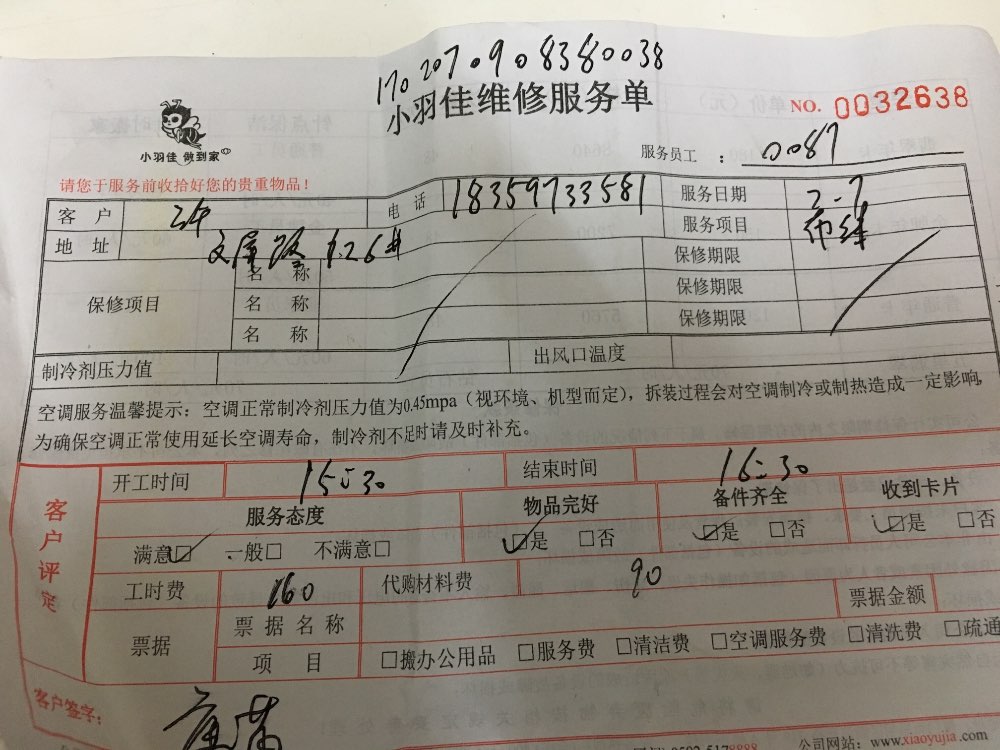 170 207 0908380038
小羽佳维修服务单
NO. 0032638
小羽佳 做到家
服务员工 : 0087
请您于服务前收拾好您的贵重物品!
客 户 电 话 18359733581 服务日期 2.7
地 址 文屏路126# 服务项目 布线
保修项目 名 称 保修期限
名 称 保修期限
名 称 保修期限
制冷剂压力值 出风口温度
空调服务温馨提示:空调正常制冷剂压力值为0.45mpa(视环境、机型而定),拆装过程会对空调制冷或制热造成一定影响,
为确保空调正常使用延长空调寿命,制冷剂不足时请及时补充。
客户评定
开工时间 15:30 结束时间 16:30
服务态度 物品完好 备件齐全 收到卡片
满意☑ 一般□ 不满意□ ☑是 □否 ☑是 □否 ☑是 □否
工时费 160 代购材料费 90 票据金额
票据 票 据 名 称
项 目 □搬办公用品 □服务费 □清洁费 □空调服务费 □清洗费 □疏通
客户签字:
公司网站:www.xiaoyujia.com